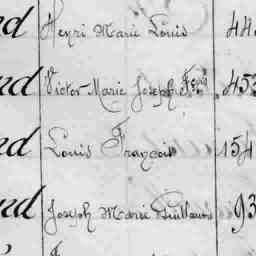 nd Henri Marie Louis 44
nd Victor Marie Joseph 453
nd Louis François 154
nd Joseph Marie Guillaume 93